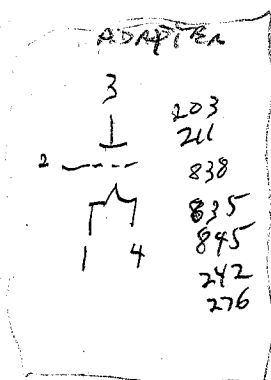 ADAPTER
3
203
211
2
838
835
845
1 4
242
276